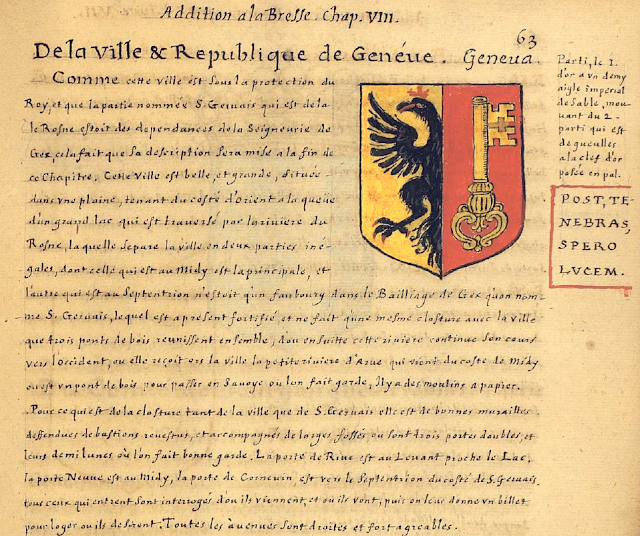 Addition a la Bresse. Chap. VIII.
63
De la ville & Republique de Genéve. Geneva.
Comme cette ville est sous la protection du
Roy, et que la partie nommée S. Gervais qui est de la
le Rosne estoit des dependances de la Seigneurie de
Gex, cela fait que sa description sera mise a la fin de
ce Chapitre. Cette Ville est belle, et grande, située
dans vne plaine, tenant du costé d'orient a la queue
d'un grand lac qui est traversé par la riviere du
Rosne, laquelle separe la ville en deux parties iné-
gales, dont celle qui est au Midy est la principale, et
l'autre qui est au Septentrion n'estoit qu'un fauboury dans le Bailliage de Gex qu'on nom-
me S. Gervais, lequel est a present fortifié et ne fait qu'une mesme closture avec la ville
que trois ponts de bois reunissent ensemble, dou en suitte cette riviere continue son cours
vers l'occident, ou elle reçoit vers la ville la petite riviere d'Arue qui vient du costé de Midy
ou est vn pont de bois pour passer en Savoye ou lon fait garde, Il y a des moulins a papier.
Pour ce qui est de la closture tant de la ville que de S. Gervais elle est de bonnes murailles
deffendues de bastions revestus, et accompagnés de larges fossés, ou sont trois portes doubles, et
leurs demi lunes où l'on fait bonne garde. La porte de Rive est au Levant proche le Lac,
la porte Neuve est au Midy, la porte de Cornevin, est vers le Septentrion du costé de S. Gervais.
tous ceux qui entrent sont interrogés d'ou ils viennent, et ou ils vont, puis on leur donne vn billet
pour loger ou ils desirent. Toutes les avenues sont droites et fort agreables.
Parti, le 1.
d'or a vn demy
aigle imperial
de sable, mou-
uant du 2-
parti qui est
de gueulles
a la clef d'or
posée en pal.
POST, TE-
NEBRAS,
SPERO
LUCEM.